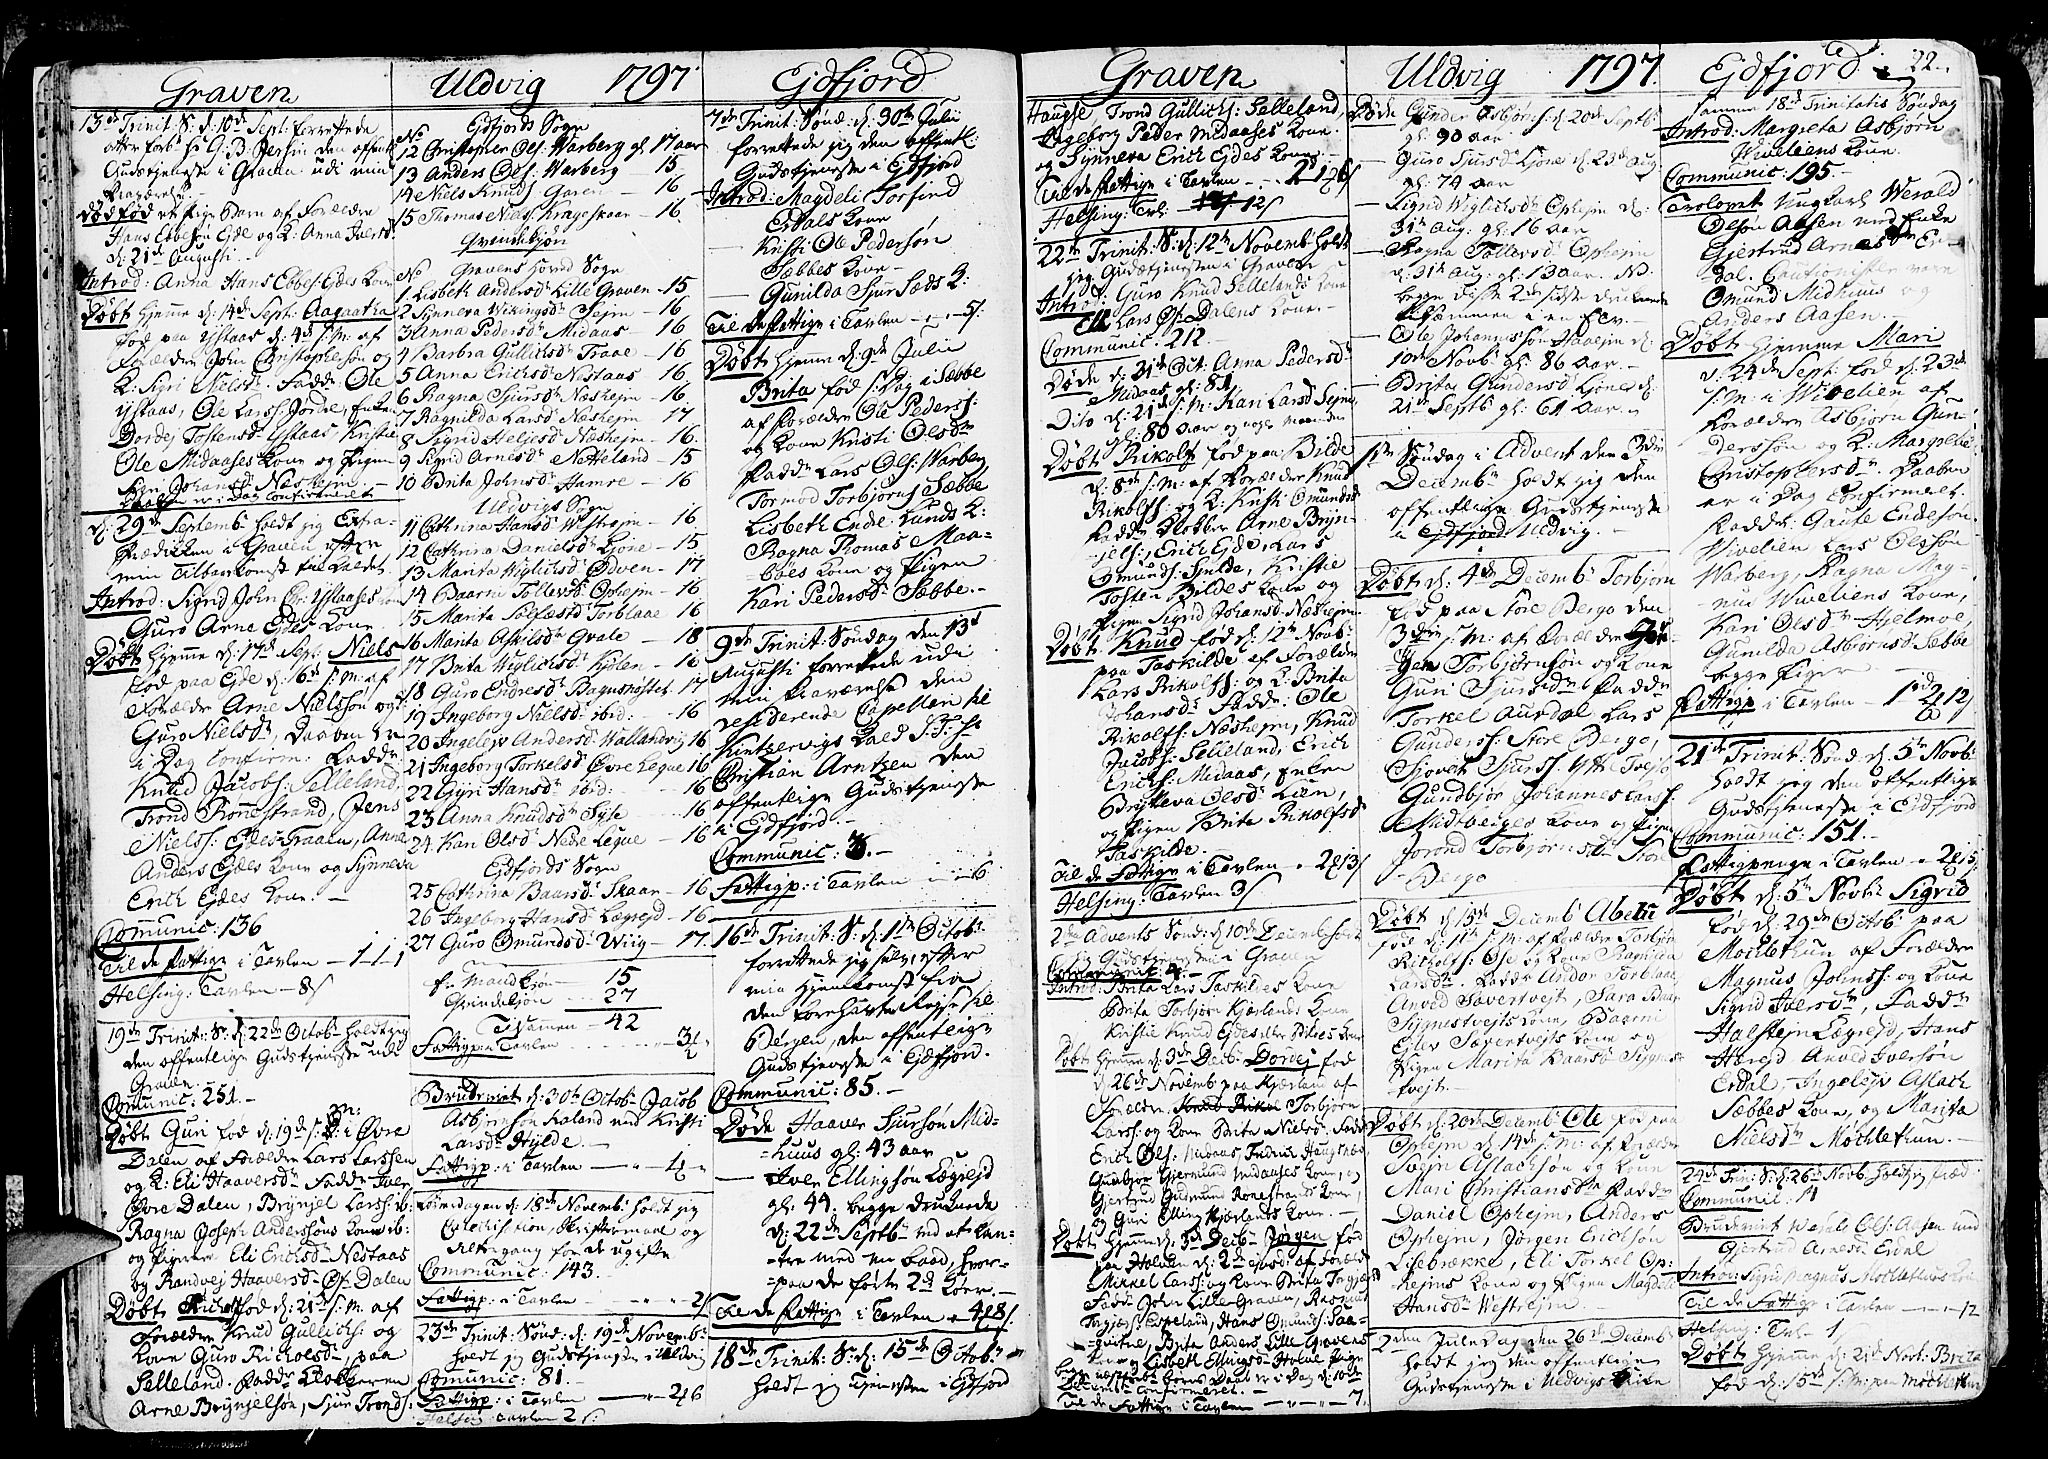 Graven
13de Trinit: S: d: 10de Sept: forrettede
efter forb: Hr G: B: Jersin den offentl:
Gudstjeneste i Graven udi min
Fraværelse
Dødfød et Pige Barn af Forældre
Hans Ebbesøn Ejde og K: Anna Iversd:
d: 21de Augusti.
Introd: Anna Hans Ebbes: Ejdes Kone
Døbt hjemme d: 14de Sept: Aagaatha
fød paa Ystaas d: 4de s: M: af
Forældre John Christophersøn og
K: Sigri Nielsd: Fadd: Ole
Ystaas, Ole Larss: Jordre, Enken
Dordej Tostensd: Ystaas Kristie
Ole Midaases Kone og Pigen
Sigri Johansd: Næshejm.
Barnet er i Dag Confirmeret
d: 29de Septemb: holdt jeg Extra-
Prædiken i Graven efter
min Tilbagekomst fra Kaldet.
Introd: Sigrid John Chr: Ystaases Kone
Guro Arne Ejdes Kone
Døbt hjemme d: 17de Sept Niels
fød paa Ejde d: 16de s: M: af
Forældre Arne Nielssøn og
Guro Nielsd:, Barnet er
i Dag Confirm: Fadd:
Knud Jacobs: Selleland,
Trond Rønnestrand, Jens
Nielss: Ejdes-Traaen, Anna
Anders Ejdes Kone og Synneva
Erich Ejdes Kone. -
Communic: 136
Til de Fattige i Tavlen - 1-1-1
Helsing: Tavlen - 8s
19de Trinit: S: d: 22de Octob: holdt jeg
den offentlige Gudstjeneste udi
Graven
Communic: 251. -
Døbt Guri fød d: 19de s: M: i Øvre
Dalen af Forældre Lars Larssen
og K: Eli Haaversd: Fadd: Iver
Øvre Dalen, Brynjel Larss: ib:
Ragna Joseph Anderssøns Kone ib:
og Pigerne Eli Erichsd: Nestaas
og Randvej Haaversd: Øf: Dalen
Døbt Guro fød d: 21de s: M: af
Forældre Knud Gullichs: og
Kone Guro Richolsd:, paa
Selleland. Fadd: Klokkeren
Arne Brynjelsøn, Sjur Tronds:
Uldvig 1797
No Ejdfjords Sogn
12 Christopher Ols: Warberg gl: 17 aar
13 Anders Ols: Warberg - 15
14 Niels Knuds: Garen - 16
15 Thomas Niels: Krageskaar - 16
Qvindekjøn
No Gravens Hoved Sogn
1 Lisbeth Andersd: Lille Graven - 15
2 Synneva Wikingsd: Sejm - 16
3 Anna Pedersd: Midaas - 16
4 Barbra Gullichsd: Traae - 16
5 Anna Erichsd: Nestaas - 16
6 Ragna Sjursd: Næshejm - 16
7 Ragnilda Larsd: Næshejm - 17
8 Sigrid Heljesd: Næshejm - 16
9 Sigrid Arnesd: Netteland - 15
10 Brita Johnsd: Hamre - 16
Uldvigs Sogn
11 Cathrina Hansd: Westrejm - 16
12 Cathrina Danielsd: Ljone - 15
13 Marita Wiglichsd: Ødven - 17
14 Baarni Tollevsd: Ophejm - 16
15 Marita Solfæstd: Torblaae 16
16 Marita Asvelsd: Qvale - 18
17 Brita Wiglichsd: Hylen - 16
18 Guro Endresd: Bagnshøftet 17
19 Ingeborg Nielsd: ibid: - 16
20 Ingelejv Andersd: Wallandvig 16
21 Ingeborg Torkelsd: Øvre Leque 16
22 Gyri Hansd: ibid: - 16
23 Anna Knudsd: Syse - 16
24 Kari Olsd: Nedre Leque - 16
Ejdfjords Sogn
25 Cathrina Baarsd: Skaar - 16
26 Ingeborg Hansd: Lægrejd - 16
27 Guro Omundsd: Wiig - 17
Mandkjøn - 15
Qvindekjøn - 27
Tilsamen - 42
Fattigp: i Tavlen - 3
Brudeviet d: 30te Octob: Jacob
Asbjørnsøn Haland med Kristi
Larsd: Hylde. -
Fattigp: i Tavlen - 4
Løverdagen d: 18de Novemb: holdt jeg
Catechisation, Skriftemaal og
Altergang for de ugifte
Communic: 143.
Fattigp: i Tavlen - 2s
23de Trinit: Sønd: d: 19de Novemb:
holdt jeg Gudstjeneste i Uldvig
Communic: 81. -
Fattigp: i Tavlen - 2 6
Helsin: Tavlen 2 s:
Ejdfjord
7de Trinit: Sønd: d: 30te Julii
forrettede jeg den offentl:
Gudstjeneste i Ejdfjord
Introd: Magdeli Torfind
Erdals Kone
- Kristi Ole Pedersøn
Sæbbes Kone -
- Gunilda Sjur Sæds K:
Til de Fattige i Tavlen - 5s
Døbt hjemme d: 9de Julii
Brita fød s: Dag i Sæbbe
af Forældre Ole Peders:
og Kone Kristi Olsd:
Fadd: Lars Ols: Warberg,
Tormod Torbjørns: Sæbbe
Lisbeth Ende Lunds K:
Ragna Thomas Maa=
=bøes Kone og Pigen
Kari Pedersd: Sæbbe. -
9de Trinit: Søndag den 13de
Augusti forrettede udi
min Fraværelse den
residerende Capellan til
Kintzervigs Kald S: T: Hr
Christian Arntzen den
offentlige Gudstjeneste
i Ejdfjord. -
Communic: 3. -
Fattigp: i Tavlen - 6
16de Trinit: S: d: 1ste Octob:
forrettede jeg selv, efter
min Hjemkomst fra
den forehavte Rejse til
Bergen, den offentlige
Gudstjeneste i Ejdfjord.
Communic: 85. -
Døde Haaver Sjursøn Mid=
=huus gl: 43 aar
- Iver Ellingsøn Lægrejd
gl: 44. begge druknede
d: 22de Septb: ved at kan-
=tre med en baad, hvor-
=paa de førte 2de Kør. -
Til de Fattige i Tavlen - 4 8s.
18de Trinit: S: d: 15de Octob:
holdt jeg Tjenesten i Ejdfjord
Graven
Haugse, Trond Gullichs: Selleland,
Ingeborg Peder Midaases Kone.
og Synneva Erich Ejdes Kone -
Til de Fattige i Tavlen - 2 1 6s
Helsing: Tavl: 12s
22de Trinit: S: d: 12te Novemb: holdt
jeg Gudstjenesten i Graven
Introd: Guro Knud Sellelands Kone
Eli Lars Øf: Dalens Kone. -
Communic: 212. -
Døde d: 31te Oct: Anna Pedersd:
Midaas gl: 84
Dito d: 21de s: M: Kari Larsd Sejm
gl: 80 aar og nogle maaneder
Døbt Rikolf fød paa Bilde
d: 8de s: M: af Forældre Knud
Rikolfs: og K: Kristi Omundsd:
Fadd: Klokker Arne Bryn-
jels:, Erich Ejde, Lars
Omunds: Spilde, Kristie
Tosten Bildes Kone og
Pigen Sigrid Johansd: Næshejm
Døbt Knud fød d: 12te Novb:
paa Taskilde af Forældre
Lars Rikolfs: og K: Brita
Johansd: Fadd: Ole
Rikolfs: Næshejm, Knud
Jacobs: Selleland, Erich
Erichs: Midaas, Enken
Brytteva Olsd: Lien,
og Pigen Brita Rikolfsd:
Taskilde. -
Til de Fattige i Tavlen - 2 3s
Helsing: Tavlen 3s
2den Advents Sønd: d: 10de Decemb: holdt
jeg Gudstjenesten i Graven
Communic: 4. -
Introd: Brita Lars Taskildes Kone
Brita Torbjørn Kjærlands Kone
Kristie Knud Ejdes eller Bildes Kone
Døbt hjemme d: 3de Decb: Dorej fød
d: 26de Novemb: paa Kjærland af
Forældre Torbjørn
Larss: og Kone Brita Nielsd: Fadd:
Erich Ols: Midaas, Fredrik Haugsnæs,
Gunbjør Gjermund Midaases Kone, og
Gjertrud Gudmund Ronestrands Kone,
og Guri Elling Kjærlands Kone. -
Døbt hjemme d: 3de Decb: Jørgen fød
paa Holven d: 2den ejusd: af Forældre
Mikkel Larss: og Kone Brita Torgjersd:
Fadd: John Lille Graven, Rasmus
Torgjers: Espeland, Hans Omunds: Saa=
=qvitne, Brita Anders Lille Gravens
Kone og Lisbeth Ellingsd: Holve Pige
begge næstforr: børns Daab er i Dag d: 10de
Decemb: Confirmeret. -
Til de Fattige i Tavlen - 7.
Uldvig 1797.
Døde Gunder Asbjørns: d: 20de Septb:
gl: 90 aar
- Guro Sjursd: Ljone d: 23de Aug:
gl: 74 aar
- Sigrid Wiglichsd: Ophejm d:
31te Aug: gl: 16 aar
- Ragna Tollevsd: Ophejm
d: 31te Aug: gl: 13 aar. NB.
begge disse 2de sidste druknede
tilsammen i en Elv.
- Ole Johannessøn Haaejm d:
10de Novb: gl: 86 aar. -
- Brita Gundersd: Ljone d:
21de Septb: gl: 61 Aar.
1ste Søndag i Advent den 3die
Decemb: holdt jeg den
offentlige Gudstjeneste
i Ejdfjord Uldvig. -
Døbt d: 4de Decemb: Torbjørn
fød paa Store Bergo den
3die s: M: af Forældre Jør-
gen Torbjørnsøn og Kone
Guri Sjursd: Fadd:
Torkel Aurdal, Lars
Gunderss: Store Bergo,
Sjovat Sjurs: Ytre Tvejto
Gundbjør Johannes Larss:
Midtberges Kone og Pigen
Jorond Torbjørnsd: Store
Bergo
Døbt d: 15de Decemb: Abelu
fød d: 11te s: M: af Forældre Torbjørn
Richolfs: Ose og Kone Ragnilda
Larsd: Fadd: Andor Torblaa,
Anved Sævertvejt, Sara Baar
Sygnestvejts Kone, Baarni
Eilev Sævertvejts Kone og
Pigen Marita Baarsd: Sygnes-
tvejt. -
Døbt d: 20de Decemb: Ole fød paa
Ophejm d: 14de s: M: af Forældre
Svejn Aslachsøn og Kone
Mari Christiansd: Fadd:
Daniel Ophejm, Anders
Ophejm, Jørgen Erichsøn
Lisebrække, Eli Torkel Op-
hejms Kone og Pigen Magdela
Hansd: Westrejm. -
2den Jule Dag den 26de Decemb:
holdt jeg den offentlige
Gudstjeneste i Uldvigs Kirke
Ejdfjord 22.
samme 18de Trinitatis Søndag
Introd: Margreta Asbjørn
Wiveliens Kone.
Communic: 195. -
Trolovet Ungkarl Werald
Olsøn Aasen med Enke
Gjertrud Arnesd: Er-
dal. Cautionister vare
Omund Midhuus og
Anders Aasen. -
Døbt hjemme Mari
d: 24de Sept: fød d: 23de
s: M: i Wivelien af
Forældre Asbjørn Gun-
dersøn og K: Margreta
Christophersd:. Daaben
er i Dag Confirmeret.
Fadd: Gaute Endesøn
Wivelien, Lars Olssøn
Warberg, Ragna Mag-
nus Wiveliens Kone,
Kari Olsd: Hjelmoe,
Gunilda Asbjørnsd: Sæbbe
begge Piger
Fattigp: i Tavlen - 1 2 12s
21de Trinit: Sønd: d: 5te Novb:
holdt jeg den offentlige
Gudstjeneste i Ejdfjord
Communic: 151. -
Fattigpenge i Tavlen - 2 5s
Døbt d: 5te Novb: Sigrid
fød d: 29de Octob: paa
Møchlethun af Forældre
Magnus Johnss: og Kone
Sigrid Iversd:, Fadd:
Halstejn Lægrejd, Hans
Hæreid, Anved Iversøn
Erdal, Ingelejv Aslach
Sæbbes Kone, og Marita
Nielsd: Møchlethun. -
24de Trin: S: d: 26de Novb: holdt jeg Præd
Communic: 11
Brudeviet Werald Ols: Aasen med
Gjertrud Arnesd: Erdal
Introd: Sigrid Magnus Møchlethuns Kone
Til de Fattige i Tavlen - 12
Helsing: Tavl: 1
Døbt hjemme d: 21de Novb: Brita
fød d: 15de s: M: paa Møchlethun